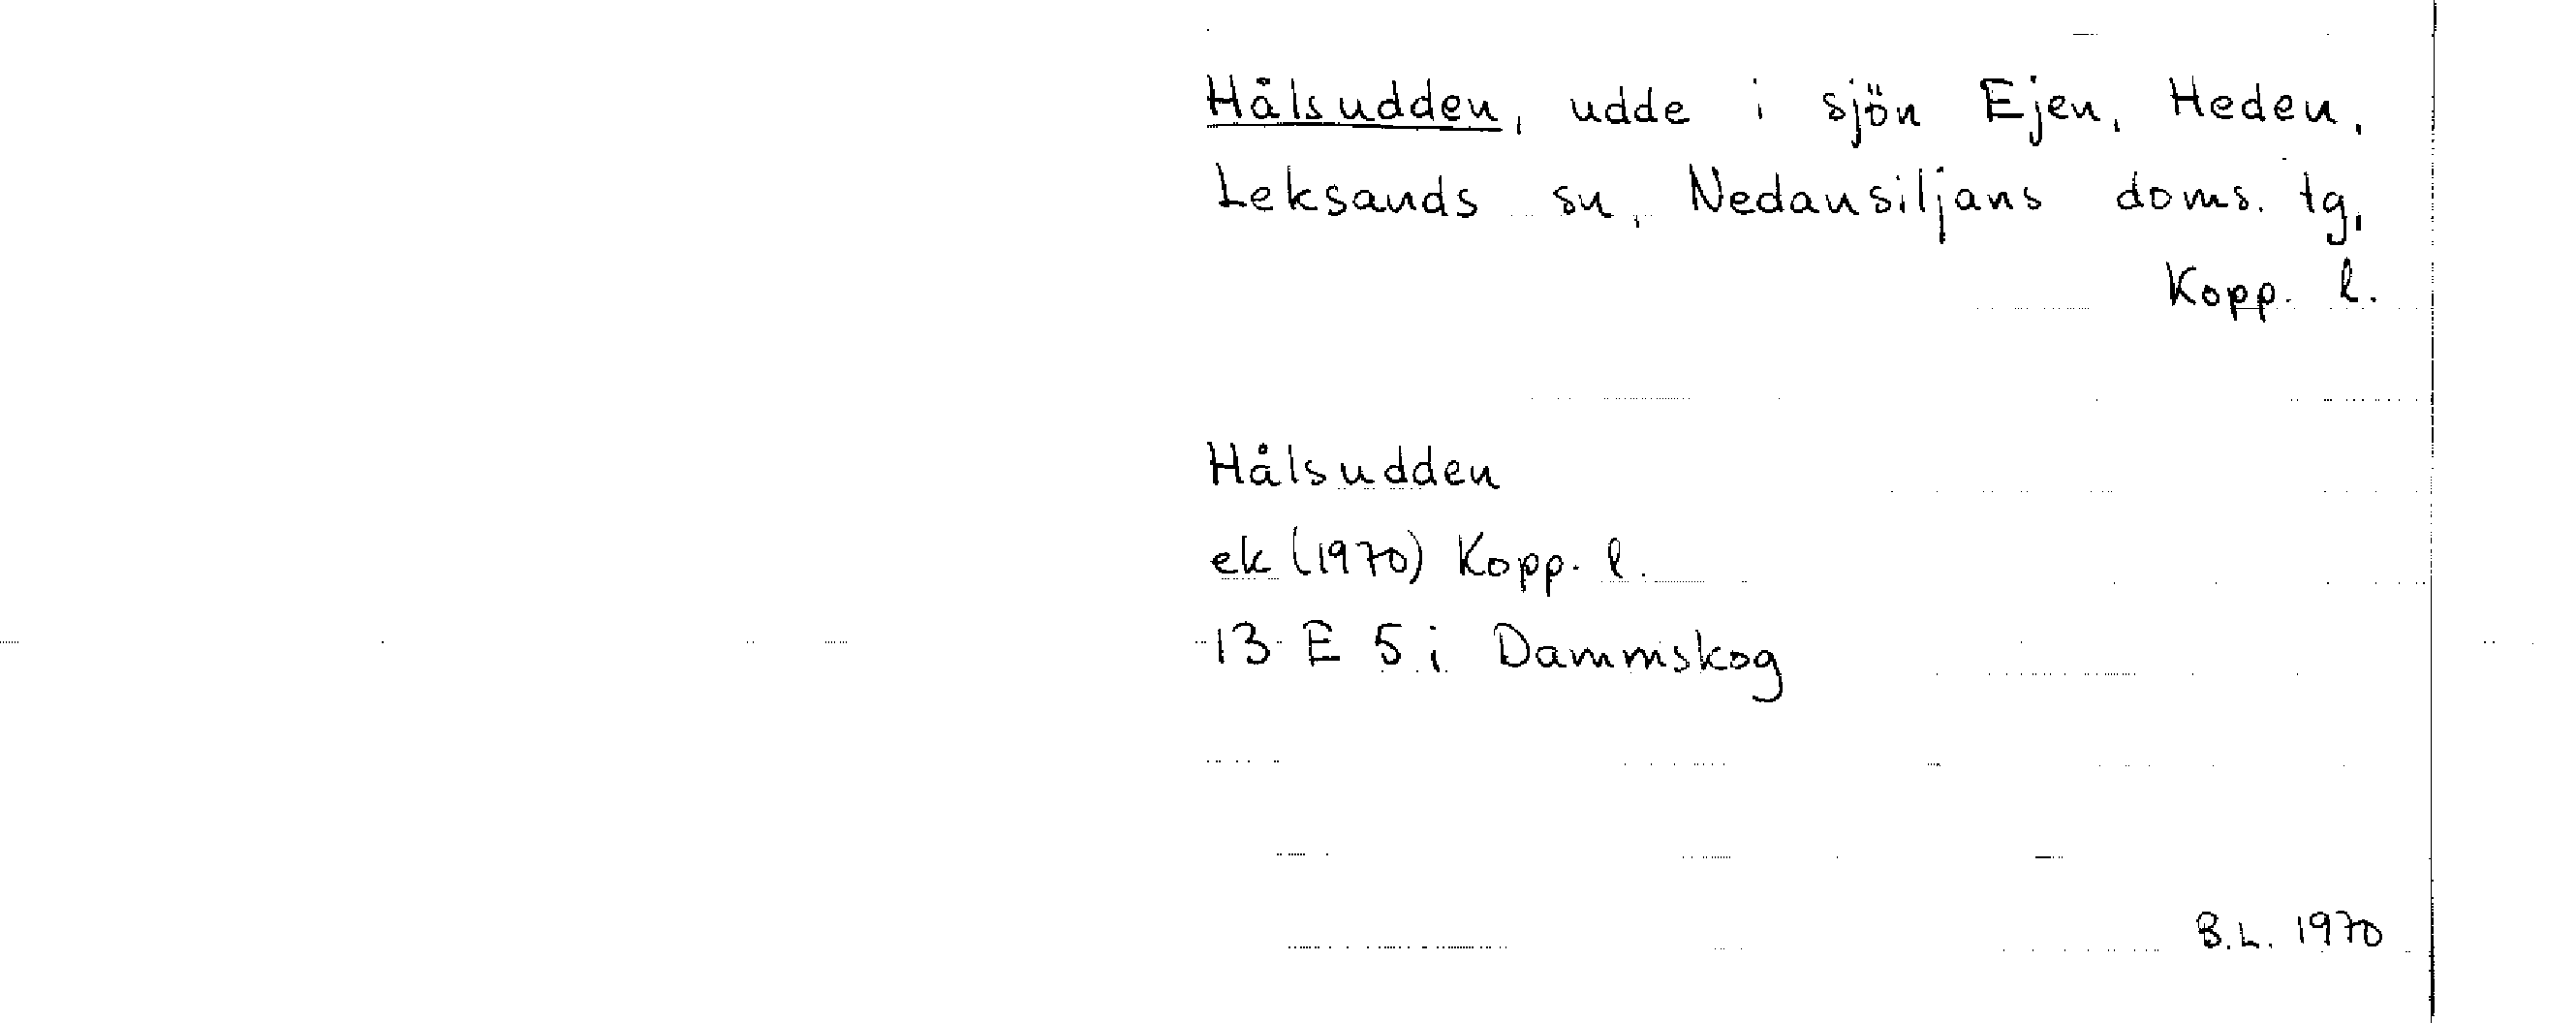 Hålsudden, udde i sjön Ejen, Heden,
Leksands sn, Nedansiljans doms. tg,
Kopp. l.
Hålsudden
ek (1970) Kopp. l.
13 E 5 i Dammskog
B.L. 1970